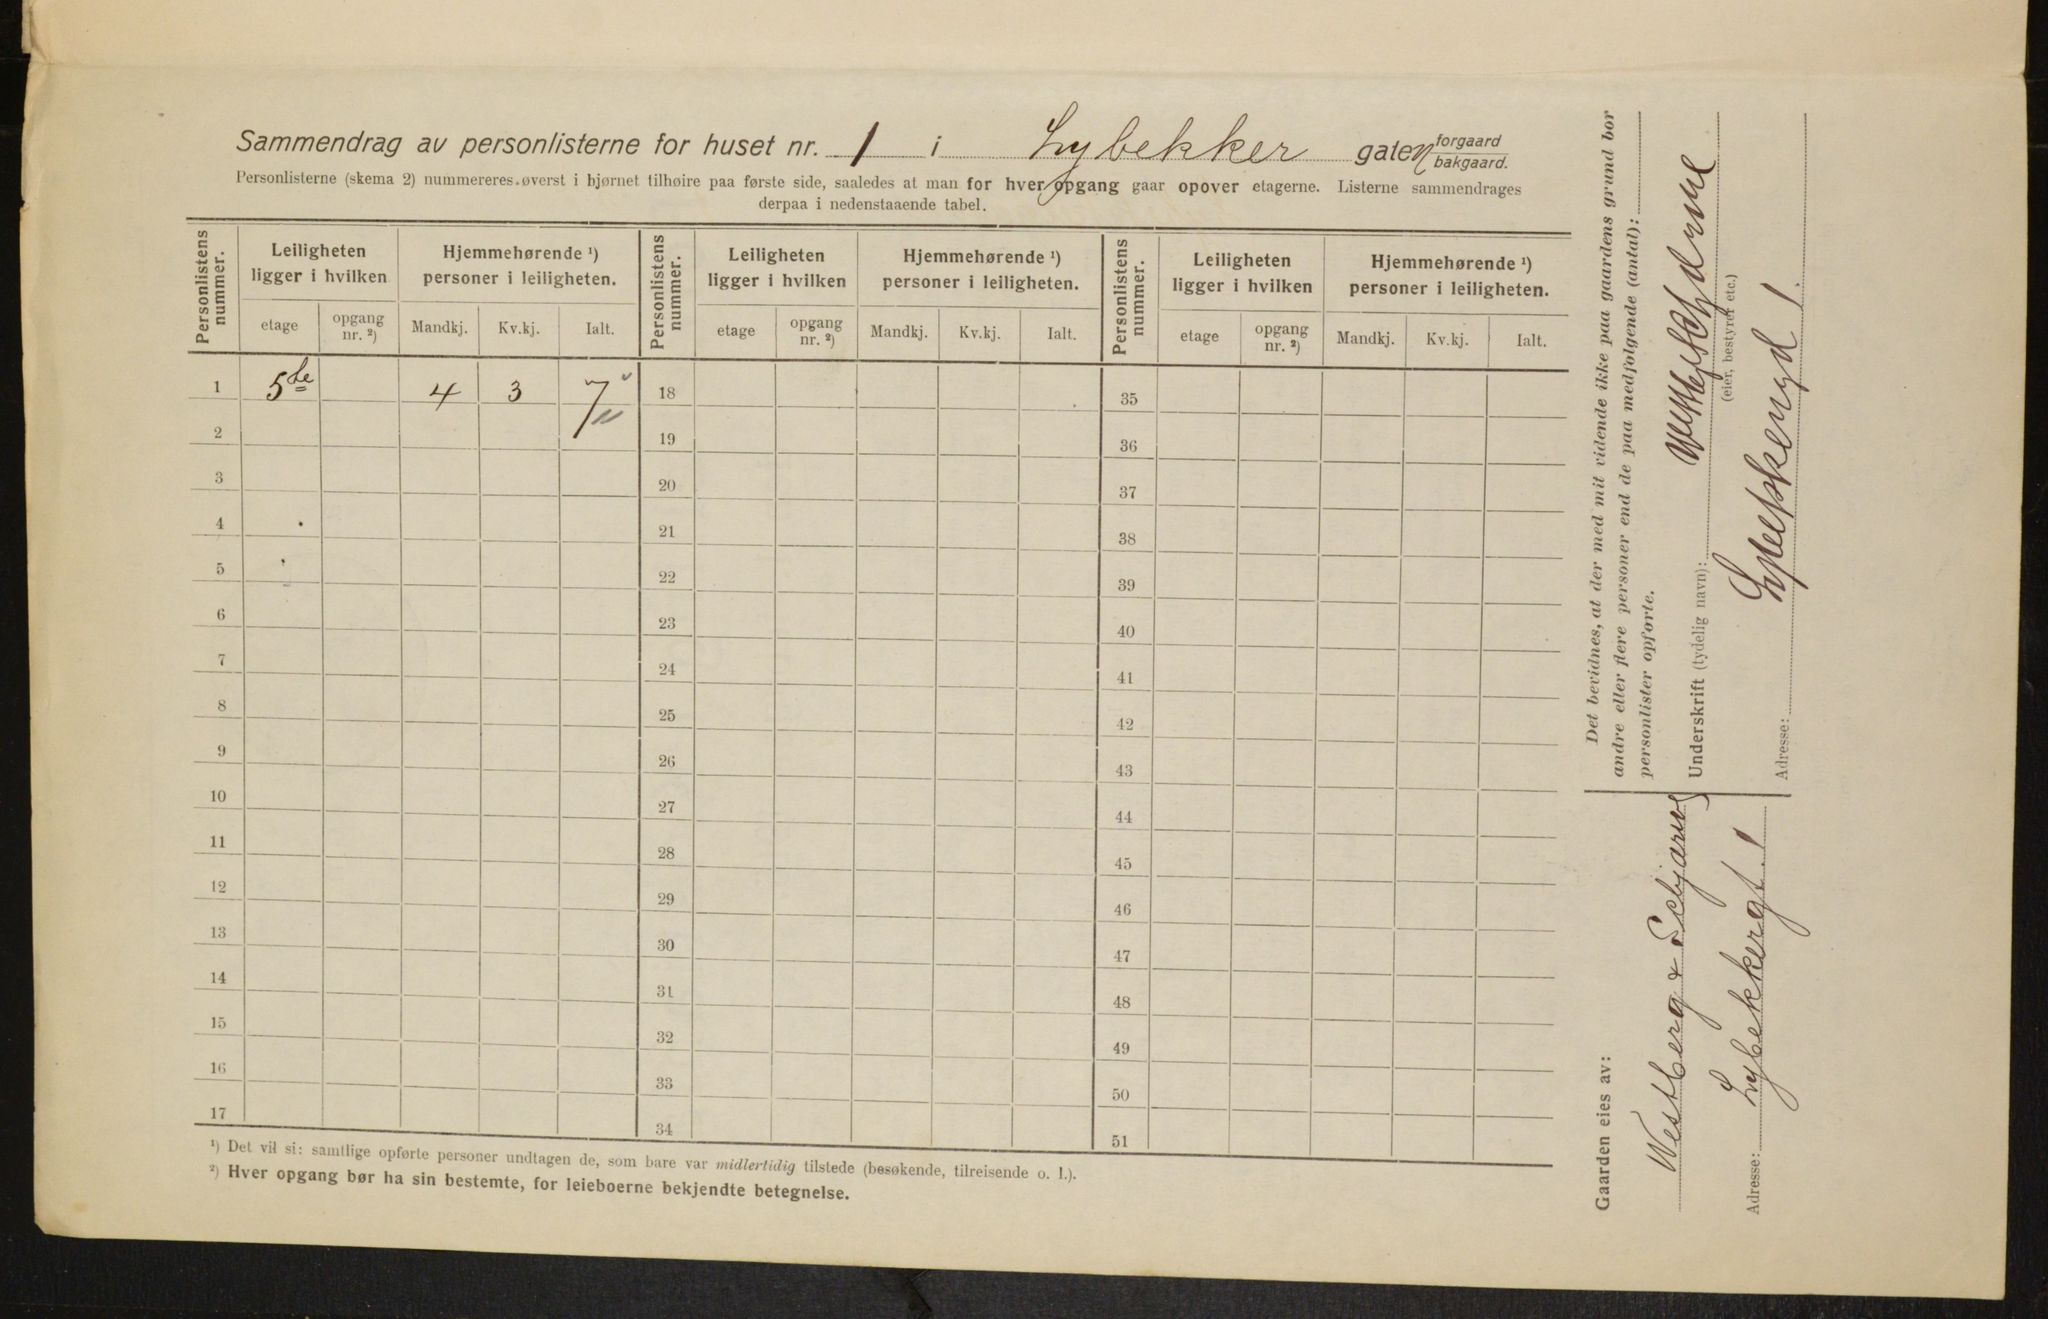 Sammendrag av personlisterne for huset nr. 1 i Lybekker gaten forgaard bakgaard.
Personlisterne (skema 2) nummereres øverst i hjørnet tilhøire paa første side, saaledes at man for hver opgang gaar opover etagerne. Listerne sammendrages
derpaa i nedenstaaende tabel.
Personlistens nummer. Leiligheten ligger i hvilken Hjemmehørende ¹) personer i leiligheten. Personlistens nummer. Leiligheten ligger i hvilken Hjemmehørende ¹) personer i leiligheten. Personlistens nummer. Leiligheten ligger i hvilken Hjemmehørende ¹) personer i leiligheten.
etage opgang nr. ²) Mandkj. Kv.kj. Ialt. etage opgang nr. ²) Mandkj. Kv.kj. Ialt. etage opgang nr. ²) Mandkj. Kv.kj. Ialt.
1 5te 4 3 7 18 35
2 19 36
3 20 37
4 21 38
5 22 39
6 23 40
7 24 41
8 25 42
9 26 43
10 27 44
11 28 45
12 29 46
13 30 47
14 31 48
15 32 49
16 33 50
17 34 51
¹) Det vil si: samtlige opførte personer undtagen de, som bare var midlertidig tilstede (besøkende, tilreisende o. l.).
²) Hver opgang bør ha sin bestemte, for leieboerne bekjendte betegnelse.
Det bevidnes, at der med mit vidende ikke paa gaardens grund bor
andre eller flere personer end de paa medfølgende (antal):
personlister opførte.
Underskrift (tydelig navn):
(eier, bestyrer etc.)
Adresse: 1
Gaarden eies av:
Westberg &
Adresse: Lybekkergt. 1